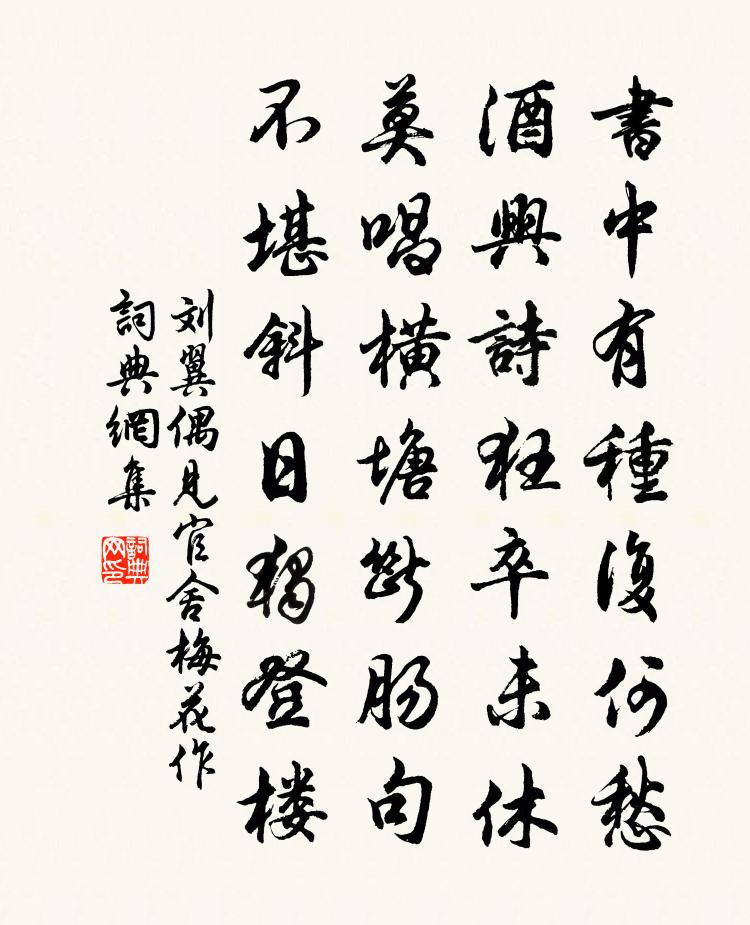 書中有種復何愁
酒興詩狂卒未休
莫唱橫塘斷肠句
不堪斜日獨登楼
刘翼偶見官舍梅花作
詞典網集
詞典网印